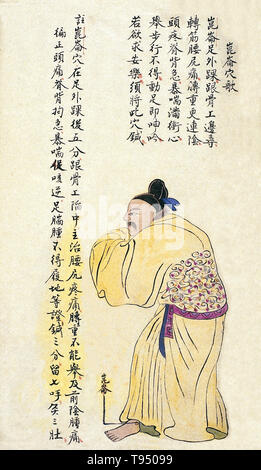 崑崙穴歌
崑崙足外踝跟骨上邊尋
轉筋腰尻痛膊重更連陰
頭疼脊背急暴喘滿衝心
舉步行不得動足即呻吟
若欲求安樂須將此穴鍼
註崑崙穴在足外踝後五分跟骨上陷中主治腰尻疼痛膊重不能舉及前陰腫痛
偏正頭痛脊背拘急暴喘
咳逆足腨腫不得履地等證鍼三分留七呼灸三壯
崑崙
alamy
Image ID: T95099
www.alamy.com